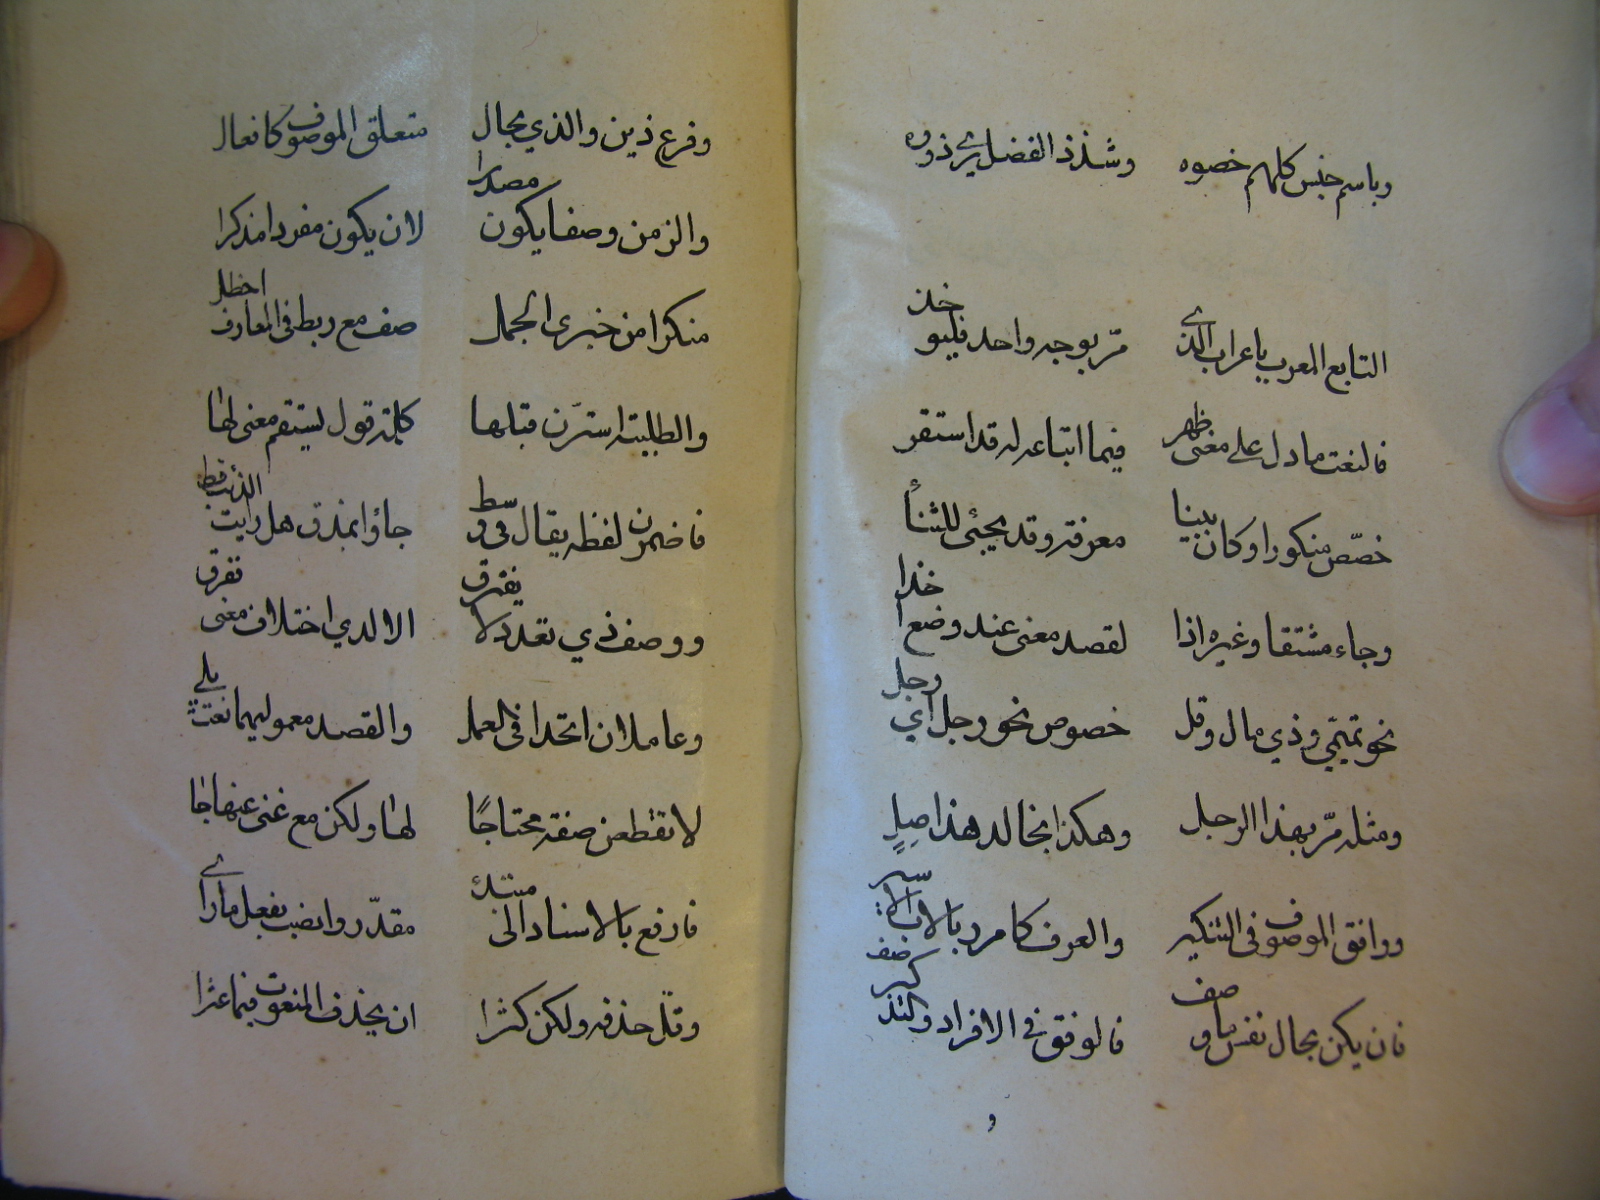 وباسم جنس كلهم خصوه وشذ ذا الفضل يرى ذووه
التابع المعرب باعراب الذي مرّ بوجه واحد فليؤخذ
فالنعت ما دل على معنى ظهر فيما اتباعه له قد استقر
خصّص منكورا وكان يبينا معرفة وقد يجئ للثنا
وجاء مشتقا وغيره اذا لقصد معنى عند وضع اخذا
نحو تميمي وذي مال وقل خصوص نحو رجل اي رجل
ومثله مرّ بهذا الرجل وهكذا بخالد هذا صِلِ
ووافق الموصوف في التنكير والعرف كامرر بالاب الاسير
فان يكن بحال نفس ما وصف فالوفق في الافراد والتذكير صف
وفرع ذين والذي بحال متعلق الموصوف كانعال
والزمن وصفا يكون مصدرا لان يكون مفردا مذكرا
منكرا من خبرى الجمل صف مع ربط في المعارف احظل
والطلبية استرن قبلها كلمة قول يستقم معنى لها
فاضمرن لفظه يقال في وسط جاؤا بمذق هل رايت الذئب قط
ووصف ذي تعدد لا يفترق الا لدي اختلاف معنى تفرق
وعاملان اتحدا في العمل والقصد معموليهما نعت يلي
لا تقطعن صفة محتاجًا لها ولكن مع غنى عنها جا
فارفع بالاسناد الى مبتدئ مقدّر وانصب بفعل مارا
وقلّ حذفه ولكن كثرا ان يحذف المنعوت فيما عثرا